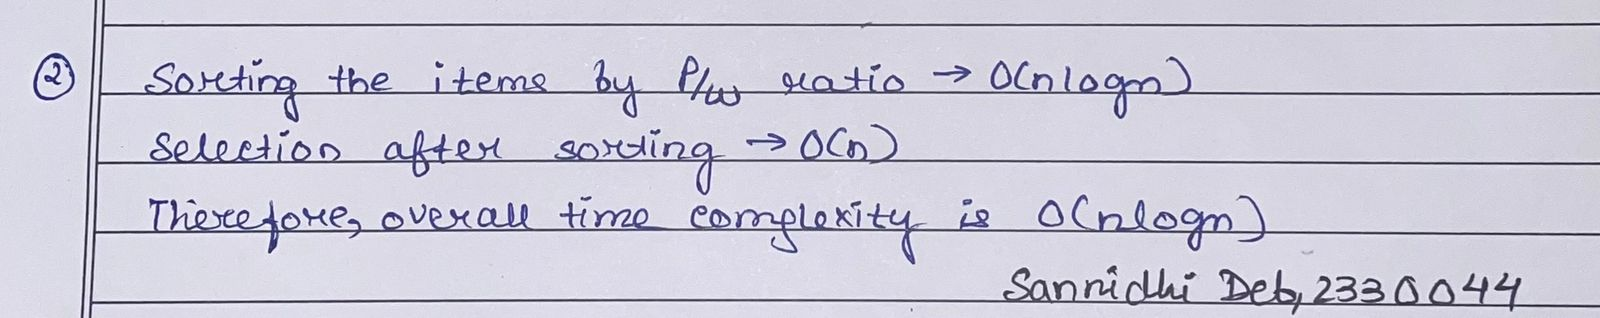 ② Sorting the items by P/w ratio → O(nlogn)
Selection after sorting → O(n)
Therefore, overall time complexity is O(nlogn)
Sannidhi Deb, 2330044